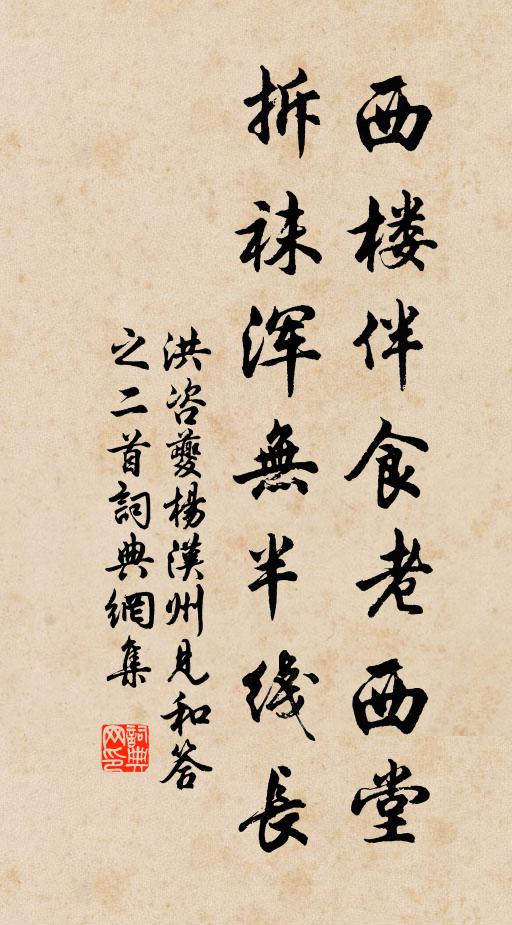 西楼伴食老西堂
拆袜浑無半线長
洪咨夔楊漢州見和答
之二首詞典網集
詞典网印